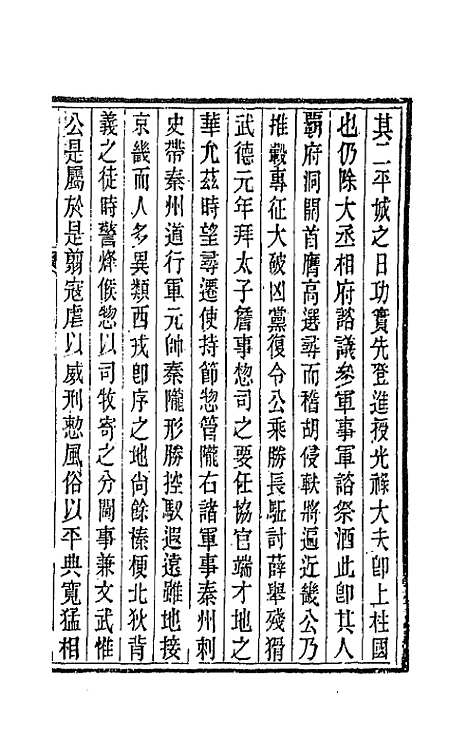 其二平城之日功實先登進授光祿大夫卽上柱國
也仍除大丞相府諮議參軍事軍諮祭酒此卽其人
霸府洞開首膺高選尋而稽胡侵軼將逼近畿公乃
推轂專征大破凶黨復令公乘勝長驅討薛舉殘猾
武德元年拜太子詹事惣司之要任協官端才地之
華允茲時望尋遷使持節惣管隴右諸軍事秦州刺
史帶秦州道行軍元帥秦隴形勝控馭遐遠雖地接
京畿而人多異類西戎卽序之地尙餘榛梗北狄背
義之徒時警烽候惣以司牧寄之分閫事兼文武惟
公是屬於是翦寇虐以威刑懃風俗以平典寬猛相